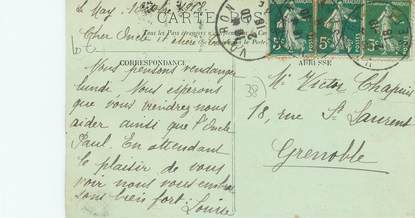 Le May
CARTE
Tous les Pays étrangers
Cher Oncle
CORRESPONDANCE
Nous pensons vendanger
lundi. Nous espérons
que vous viendrez nous
aider ainsi que l'Oncle
Paul. En attendant
le plaisir de vous
voir nous vous embras
sons bien fort. Louise
ADRESSE
Mr Victor Chapuis
18, rue St Laurent
Grenoble
38